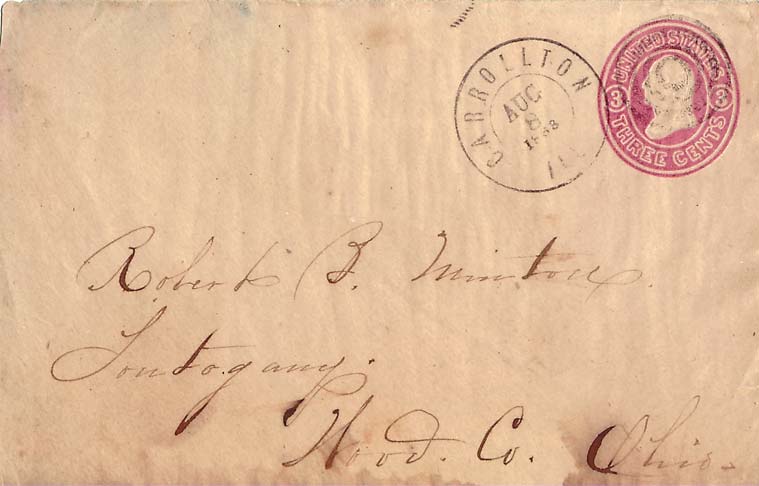 CARROLLTON
AUG
8
1863
ILL
UNITED STATES
3 3
THREE CENTS
Robert B. Minton
Tontogany.
Wood. Co. Ohio